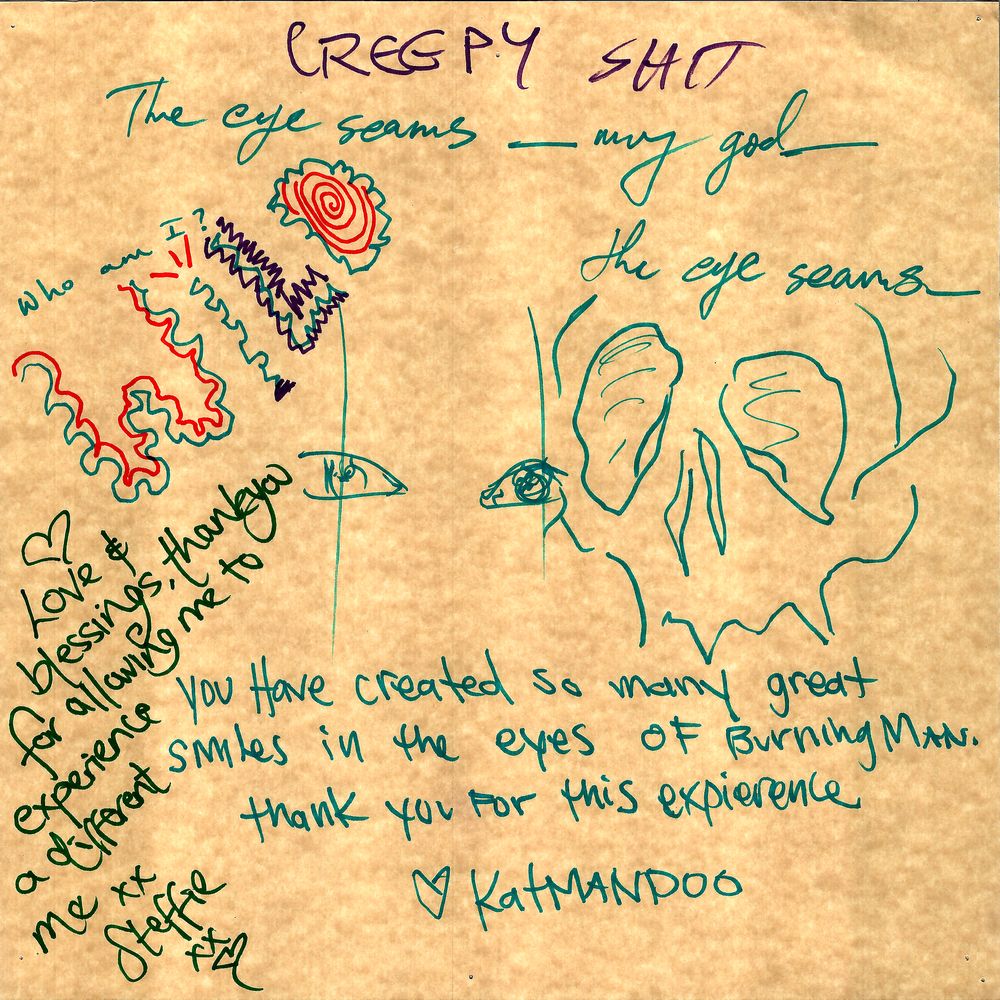 CREEPY SHIT
The eye seams — my god —
the eye seams
who am I?
♡
Love &
blessings, thankyou
for allowing me to
experience
a different
me xx
Steffie
xx♡
you Have created so many great
smiles in the eyes OF BurningMAN.
thank you FOR this expierence
♡ KatMANDOO